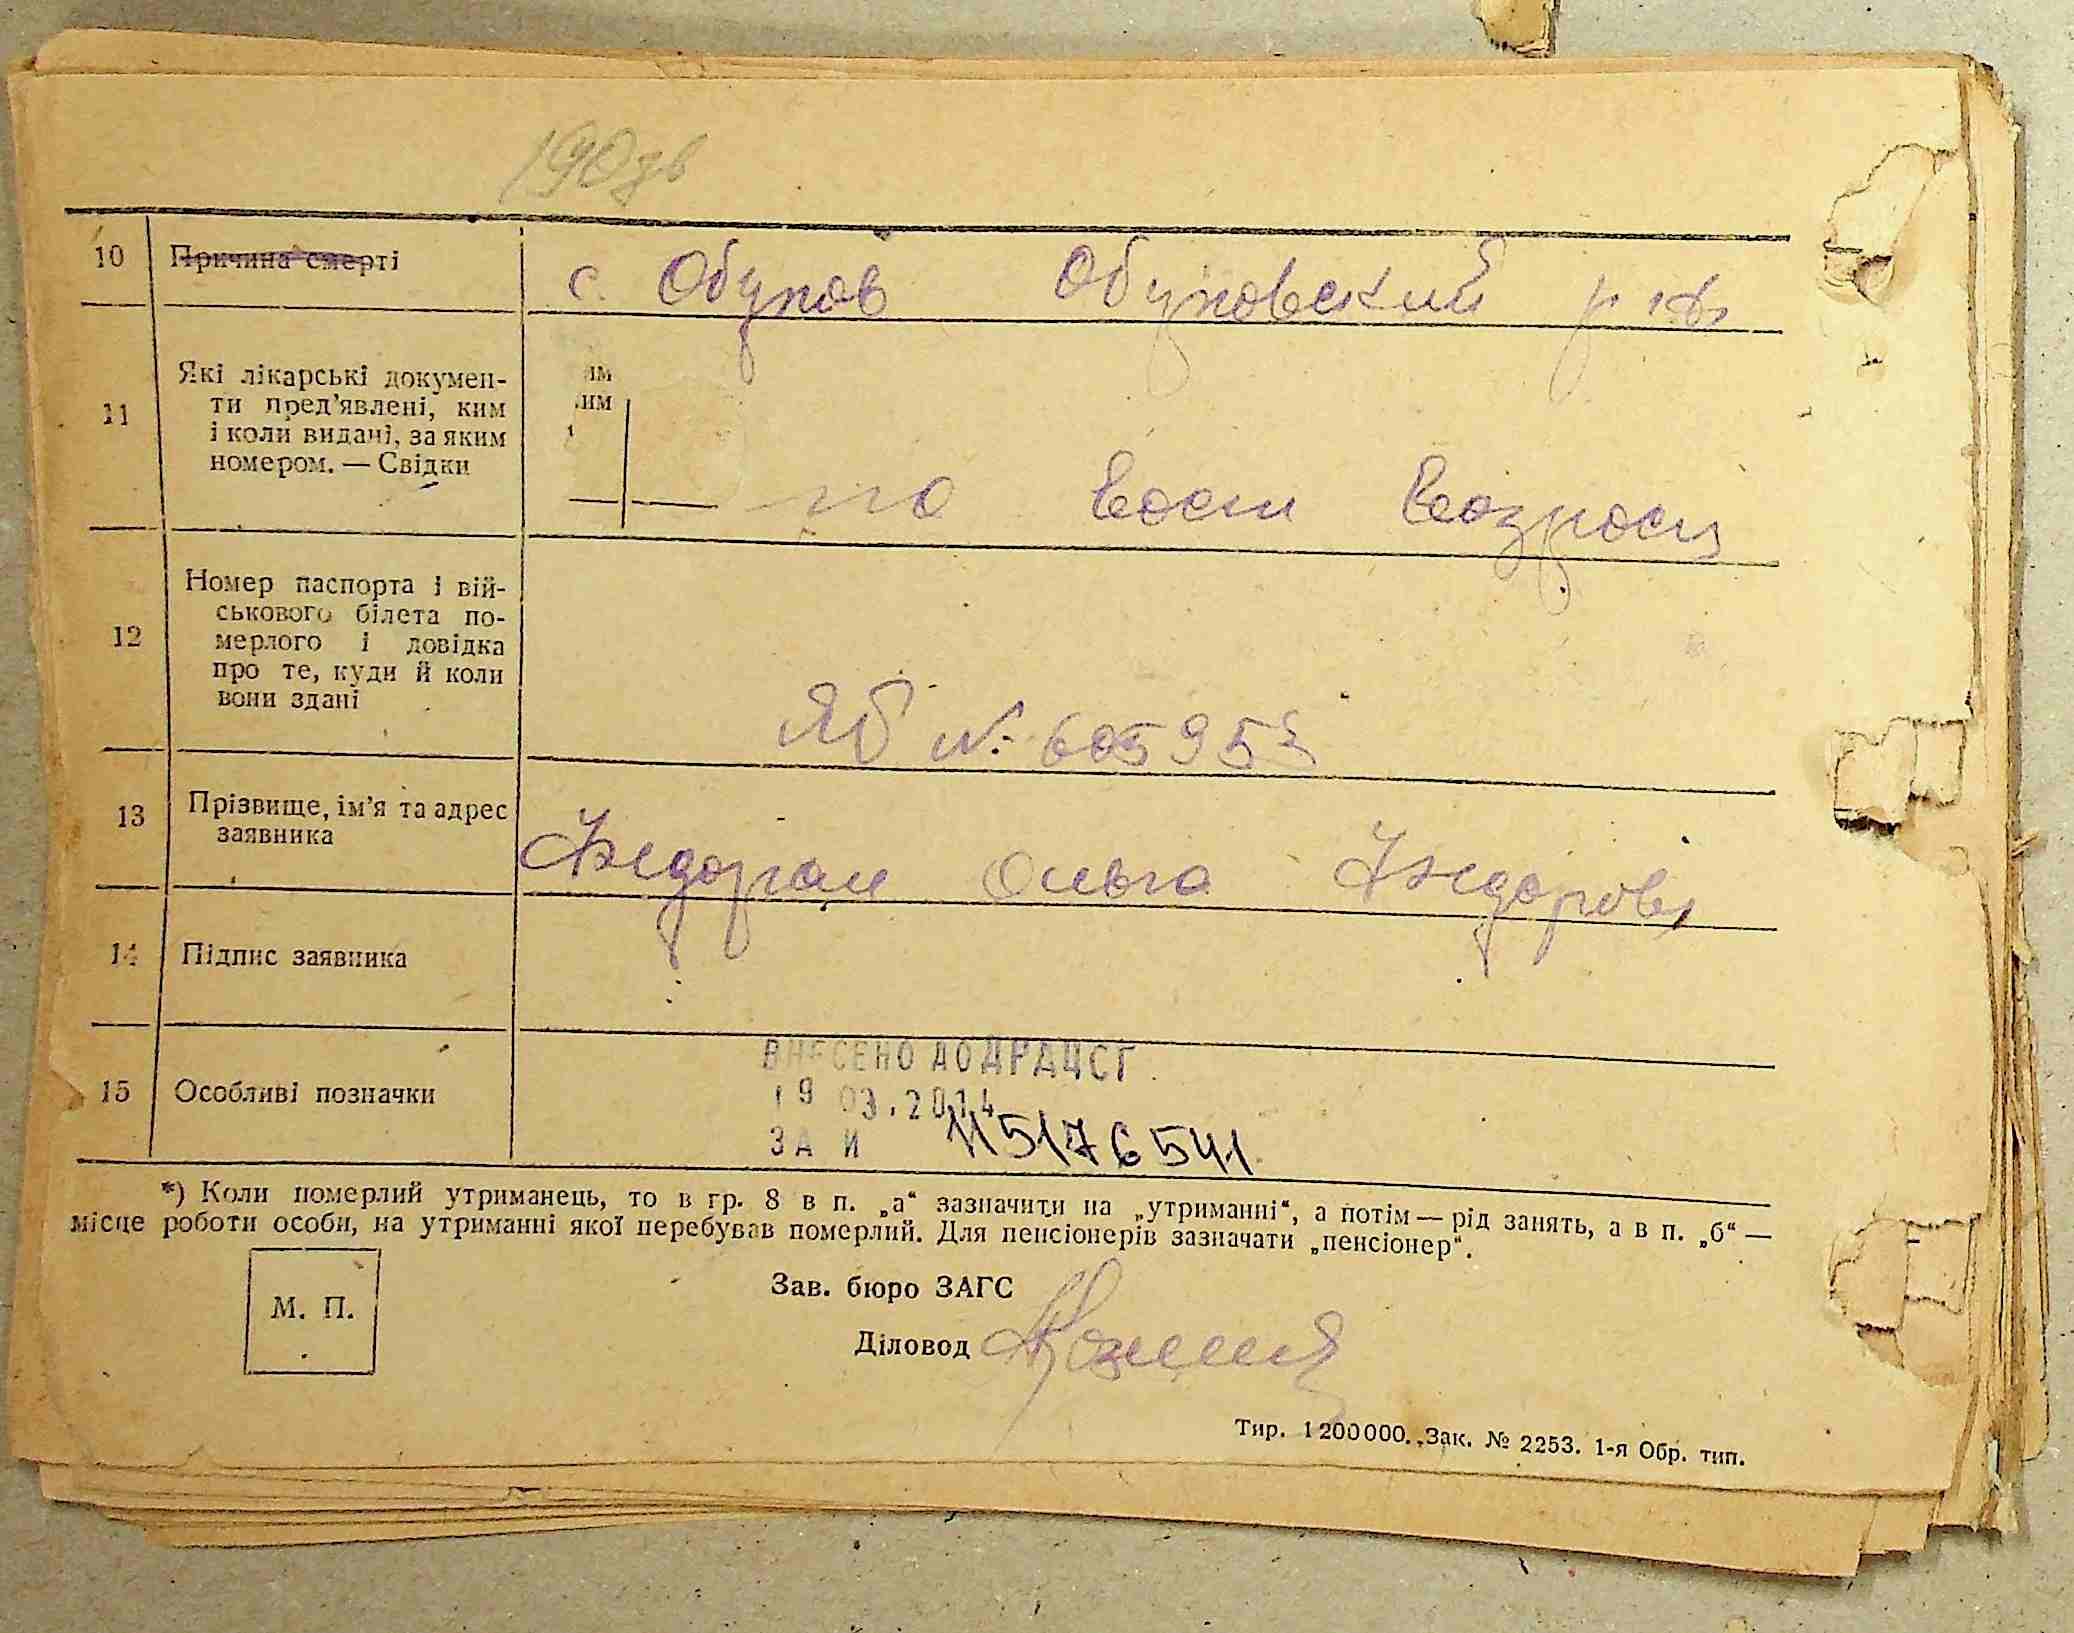 190зв
10 Причина смерті с. Обухов Обуховский р-н
11 Які лікарські докумен-
ти пред'явлені, ким
і коли видані, за яким
номером. — Свідки
им
им
по восст возрост
12 Номер паспорта і вій-
ськового білета по-
мерлого і довідка
про те, куди й коли
вони здані
ЯБ № 605952
13 Прізвище, ім'я та адрес
заявника
Ольга
14 Підпис заявника
15 Особливі позначки
ВНЕСЕНО ДО ДРАЦСГ
19 03.2014
ЗА И 115176541
*) Коли померлий утриманець, то в гр. 8 в п. „а“ зазначити на „утриманні“, а потім — рід занять, а в п. „б“ —
місце роботи особи, на утриманні якої перебував померлий. Для пенсіонерів зазначати „пенсіонер“.
М. П.
Зав. бюро ЗАГС
Діловод
Тир. 1200000. Зак. № 2253. 1-я Обр. тип.